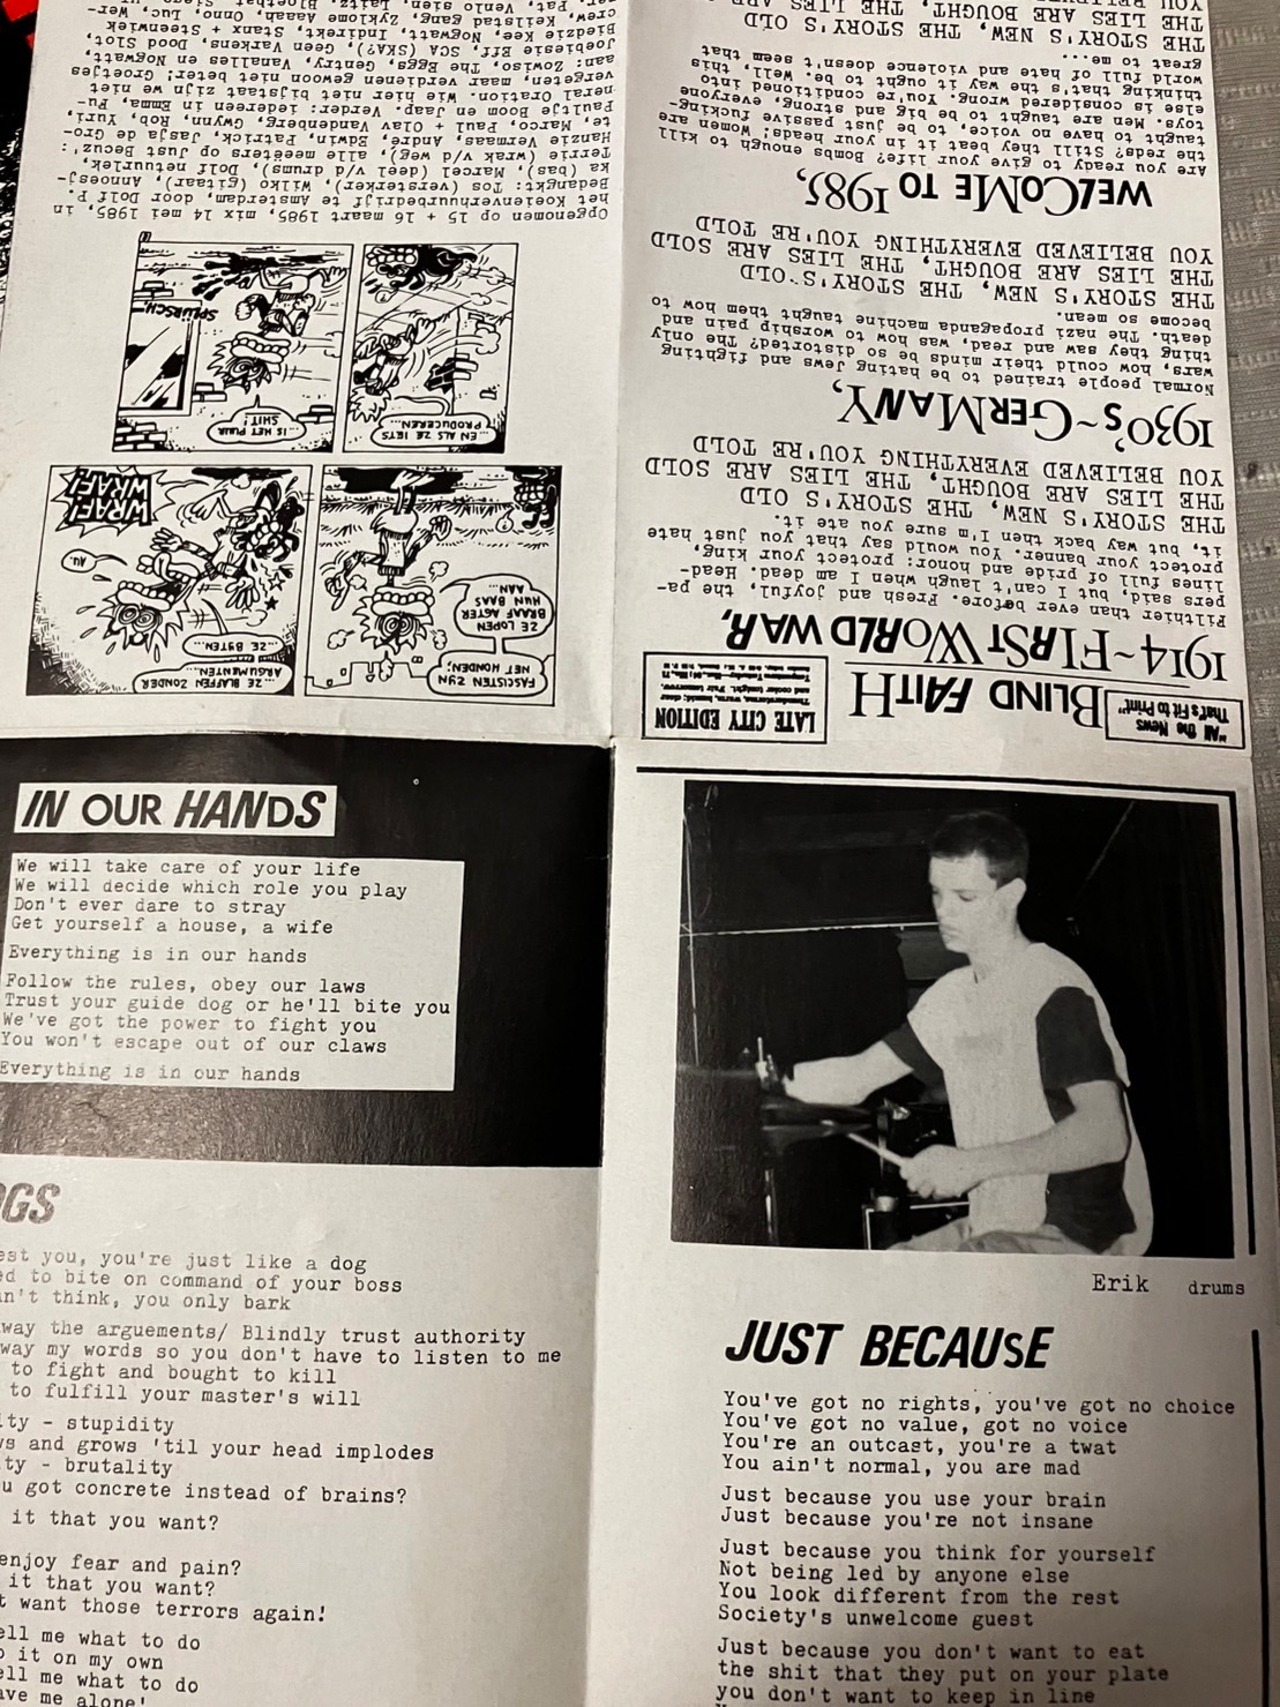 "All the News
That's Fit to Print"
BLIND FAITH
LATE CITY EDITION
1914~FIRST WORLD WAR,
Filthier than ever before. Fresh and joyful, the pa-
pers said, but I can't laugh when I am dead. Head-
lines full of pride and honor: protect your king,
protect your banner. You would say that you just hate
it, but way back then I'm sure you ate it.
THE STORY'S NEW, THE STORY'S OLD
THE LIES ARE BOUGHT, THE LIES ARE SOLD
YOU BELIEVED EVERYTHING YOU'RE TOLD
1930's~GERMANY,
Normal people trained to be hating Jews and fighting
wars, how could their minds be so distorted? The only
thing they saw and read, was how to worship pain and
death. The nazi propaganda machine taught them how to
become so mean.
THE STORY'S NEW, THE STORY'S OLD
THE LIES ARE BOUGHT, THE LIES ARE SOLD
YOU BELIEVED EVERYTHING YOU'RE TOLD
WELCOME TO 1985,
Are you ready to give your life? Bombs enough to kill
the reds? Still they beat it in your heads! Women are
taught to have no voice, to be just passive fucking-
toys. Men are taught to be big and strong, everyone
else is considered wrong. You're conditioned into
thinking that's the way it ought to be. Well, this
world full of hate and violence doesn't seem that
great to me...
THE STORY'S NEW, THE STORY'S OLD
THE LIES ARE BOUGHT, THE LIES ARE
FASCISTEN ZIJN
NET HONDEN;
ZE LOPEN
BRAAF AGTER
HUN BAAS
AAN...
ZE BLAFFEN ZONDER
ARGUMENTEN...
...ZE BYTEN...
AU!
WRAF!
WRAF!
...EN ALS ZE IETS
PRODUCEREN...
...IS HET PUUR
SHIT!
SPLURSCH
Opgenomen op 15 + 16 maart 1985, mix 14 mei 1985, in
het Koeienverhuurbedrijf te Amsterdam, door Dolf P.
Bedangkt: Tos (versterker), Wilko (gitaar), Annoesj-
ka (bas), Marcel (deel v/d drums), Dolf netuurlek,
Terrie (wrak v/d weg), alle meeëters op Just Becuz':
Hanzie Vermaas, Andre, Edwin, Patrick, Jasja de Gro-
te, Marco, Paul + Olav Vandenberg, Gwynn, Rob, Yuri,
Paultje Boom en Jaap. Verder: iedereen in Emma, Fu-
neral Oration. Wie hier niet bijstaat zijn we niet
vergeten, maar verdienen gewoon niet beter! Groetjes
aan: Zowiso, The Eggs, Gentry, Vanalles en Nogwatt,
Joebiesie Eff, SCA (SKA?), Geen Varkens, Dood Slot,
Biedzie Kee, Nogwatt, Indirekt, Stanx + Steenwiek
crew, Keilstad gang, Zyklome Aaaah, Onno, Luc, Wer-
Pat, Venlo sien, Laitz, Bloethat,
IN OUR HANDS
We will take care of your life
We will decide which role you play
Don't ever dare to stray
Get yourself a house, a wife
Everything is in our hands
Follow the rules, obey our laws
Trust your guide dog or he'll bite you
We've got the power to fight you
You won't escape out of our claws
Everything is in our hands
OGS
est you, you're just like a dog
ed to bite on command of your boss
an't think, you only bark
way the arguements/ Blindly trust authority
way my words so you don't have to listen to me
to fight and bought to kill
to fulfill your master's will
ity - stupidity
ws and grows 'til your head implodes
ity - brutality
u got concrete instead of brains?
it that you want?
enjoy fear and pain?
it that you want?
t want those terrors again!
ell me what to do
o it on my own
ell me what to do
ave me alone!
Erik drums
JUST BECAUSE
You've got no rights, you've got no choice
You've got no value, got no voice
You're an outcast, you're a twat
You ain't normal, you are mad
Just because you use your brain
Just because you're not insane
Just because you think for yourself
Not being led by anyone else
You look different from the rest
Society's unwelcome guest
Just because you don't want to eat
the shit that they put on your plate
you don't want to keep in line